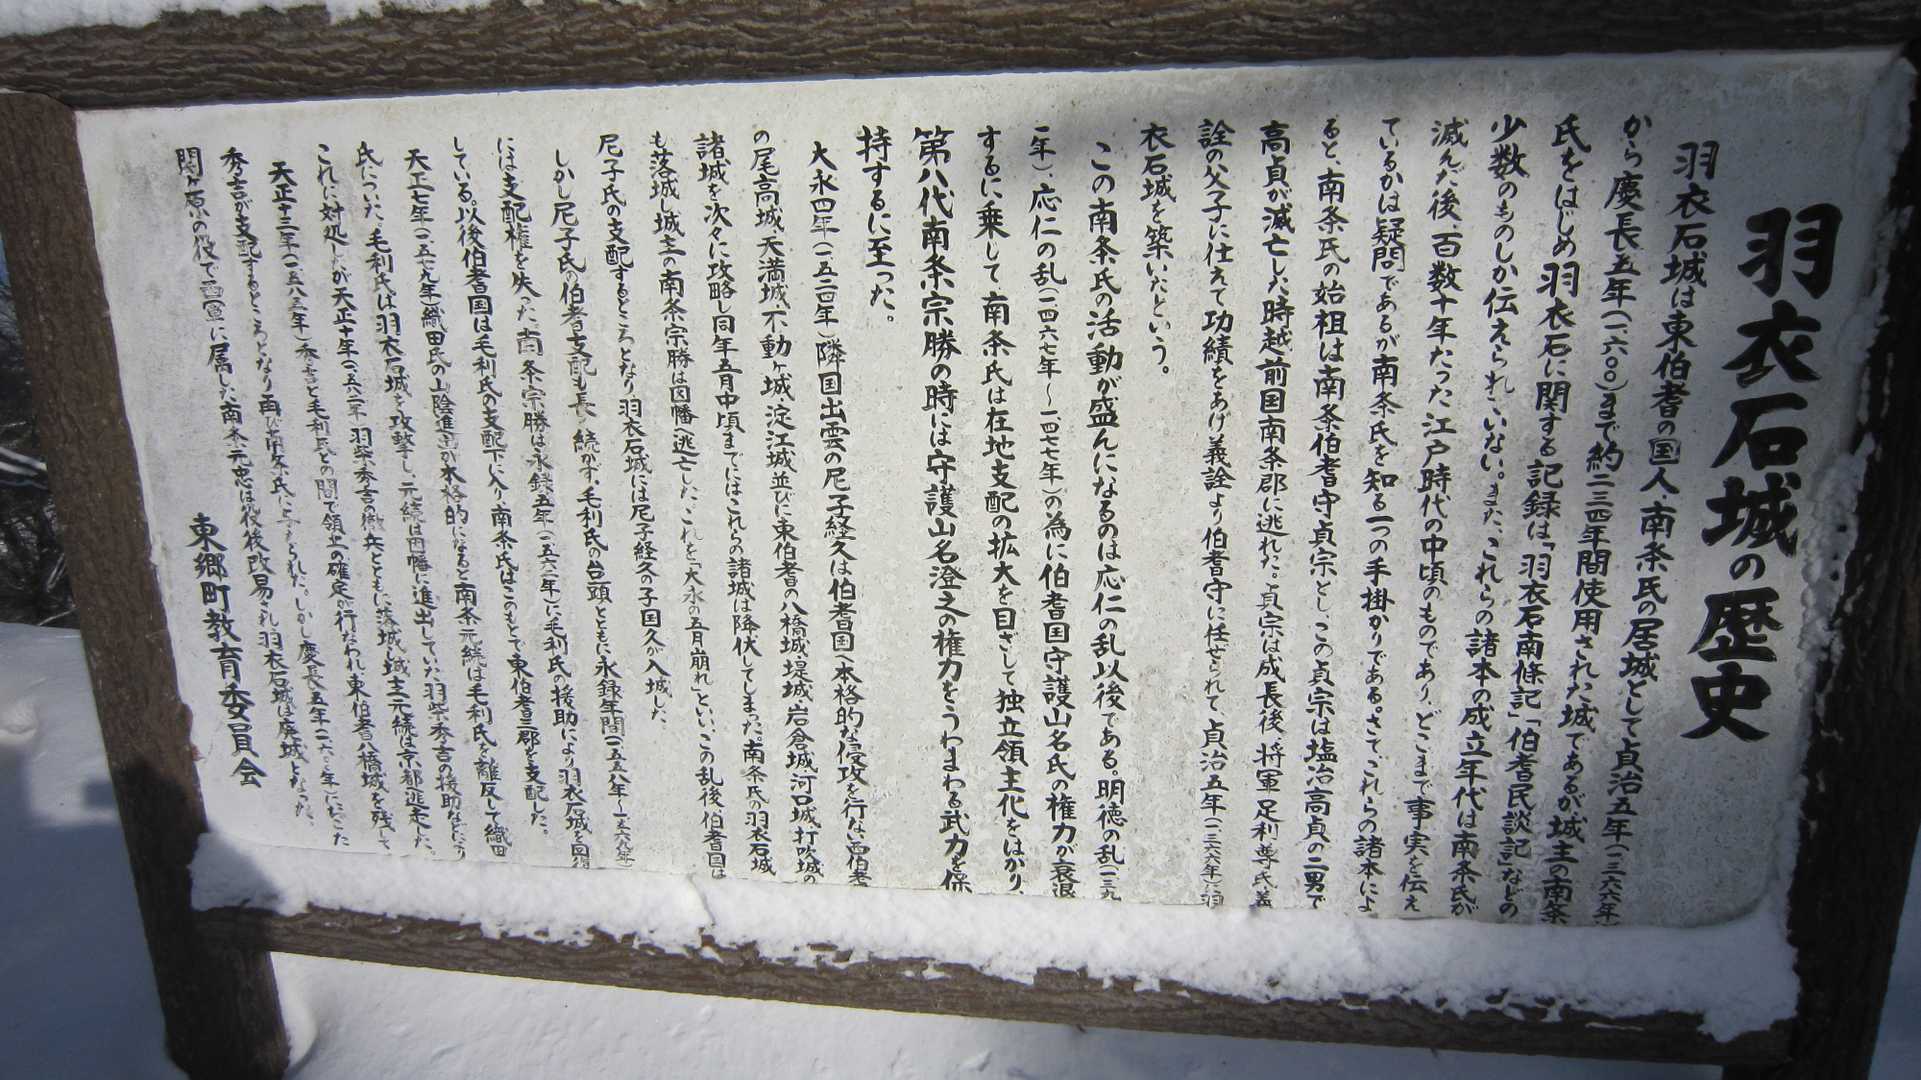 羽衣石城の歴史
羽衣石城は東伯耆の国人・南条氏の居城として貞治五年(一三六六年)
から慶長五年(一六〇〇)まで約二三四年間使用された城であるが城主の南条
氏をはじめ羽衣石に関する記録は「羽衣石南條記」「伯耆民談記」などの
少数のものしか伝えられていない。また、これらの諸本の成立年代は南条氏が
滅んだ後、百数十年たった江戸時代の中頃のものであり、どこまで事実を伝え
ているかは疑問であるが南条氏を知る一つの手掛かりである。さて、これらの諸本によ
ると、南条氏の始祖は南条伯耆守貞宗とし、この貞宗は塩冶高貞の二男で
高貞が滅亡した時越前国南条郡に逃れた。貞宗は成長後、将軍足利尊氏、義
詮の父子に仕えて功績をあげ義詮より伯耆守に任ぜられて、貞治五年(一三六六年)に羽
衣石城を築いたという。
この南条氏の活動が盛んになるのは応仁の乱以後である。明徳の乱(一三九
一年)、応仁の乱(一四六七年〜一四七七年)の為に伯耆国守護山名氏の権力が衰退
するに乗して南条氏は在地支配の拡大を目ざして独立領主化をはかり、
第八代南条宗勝の時には守護山名澄之の権力をうわまわる武力を保
持するに至った。
大永四年(一五二四年)隣国出雲の尼子経久は伯耆国へ本格的な侵攻を行ない西伯耆
の尾高城、天満城、不動ヶ城、淀江城、並びに東伯耆の八橋城、堤城、岩倉城、河口城、打吹城の
諸城を次々に攻略し同年五月中頃までにはこれらの諸城は降伏してしまった。南条氏の羽衣石城
も落城し城主の南条宗勝は因幡へ逃亡した。これを「大永の五月崩れ」といい、この乱後、伯耆国は
尼子氏の支配するところとなり羽衣石城には尼子経久の子国久が入城した。
しかし尼子氏の伯耆支配も長く続かず、毛利氏の台頭とともに永録年間(一五五八年〜一五六九年)
には支配権を失った。南条宗勝は永録五年(一五六二年)に毛利氏の援助により羽衣石城を回復
している。以後伯耆国は毛利氏の支配下に入り、南条氏はこのもとで東伯耆三郡を支配した。
天正七年(一五七九年)織田氏の山陰進出が本格的になると南条元続は毛利氏を離反して織田
氏についた。毛利氏は羽衣石城を攻撃し、元続は因幡に進出していた羽柴秀吉の援助などにより
これに対処したが天正十年(一五八二年)羽柴秀吉の撤兵とともに落城、城主元続は京都へ逃走した。
天正十三年(一五八五年)秀吉と毛利氏との間で領土の確定が行なわれ東伯耆は八橋城を残して
秀吉が支配するところとなり再び南条氏に与えられた。しかし慶長五年(一六〇〇年)におこった
関ヶ原の役で西軍に属した南条元忠は役後改易され羽衣石城は廃城となった。
東郷町教育委員会